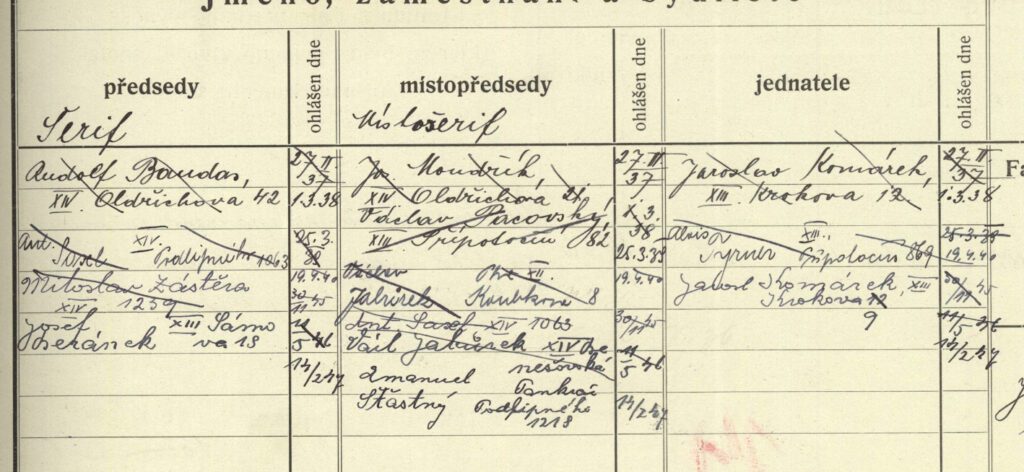 Jméno, zaměstnání a bydliště
předsedy
ohlášen dne
místopředsedy
ohlášen dne
jednatele
ohlášen dne
Šerif
Místošerif
Rudolf Baudas,
XIV Oldřichova 42
27.II.
37
1.3.38
Ant. XIV.
Sosel Podlipného 1063
25.3.
38
Miloslav Zástěra
XIV 1259
19.4.40
30/11 45
Josef XIII Sámo
Beránek va 18
11/5 46
14/2 47
Jos. Moudrák,
XIV Oldřichova 21.
27.II.
37
Václav Pacovský,
XIII Přípotoční 82
1.3.
38
25.3.38
XII.
Jabůrek Koubkova 8
19.4.40
Ant. Sosel XIV 1063
30/11 45
Václ Jabůrek XIV Be
nešovská
11/5 46
Emanuel Pankrác
Šťastný Podlipného
1218
14/2 47
Jaroslav Komárek,
XIII. Krokova 12.
27.II.
37
1.3.38
Alois XIII.
Přípotoční 869
25.3.38
19.4.40
Jarosl Komárek, XIII
Krokova 12
9
30/11 45
11/5 46
14/2 47